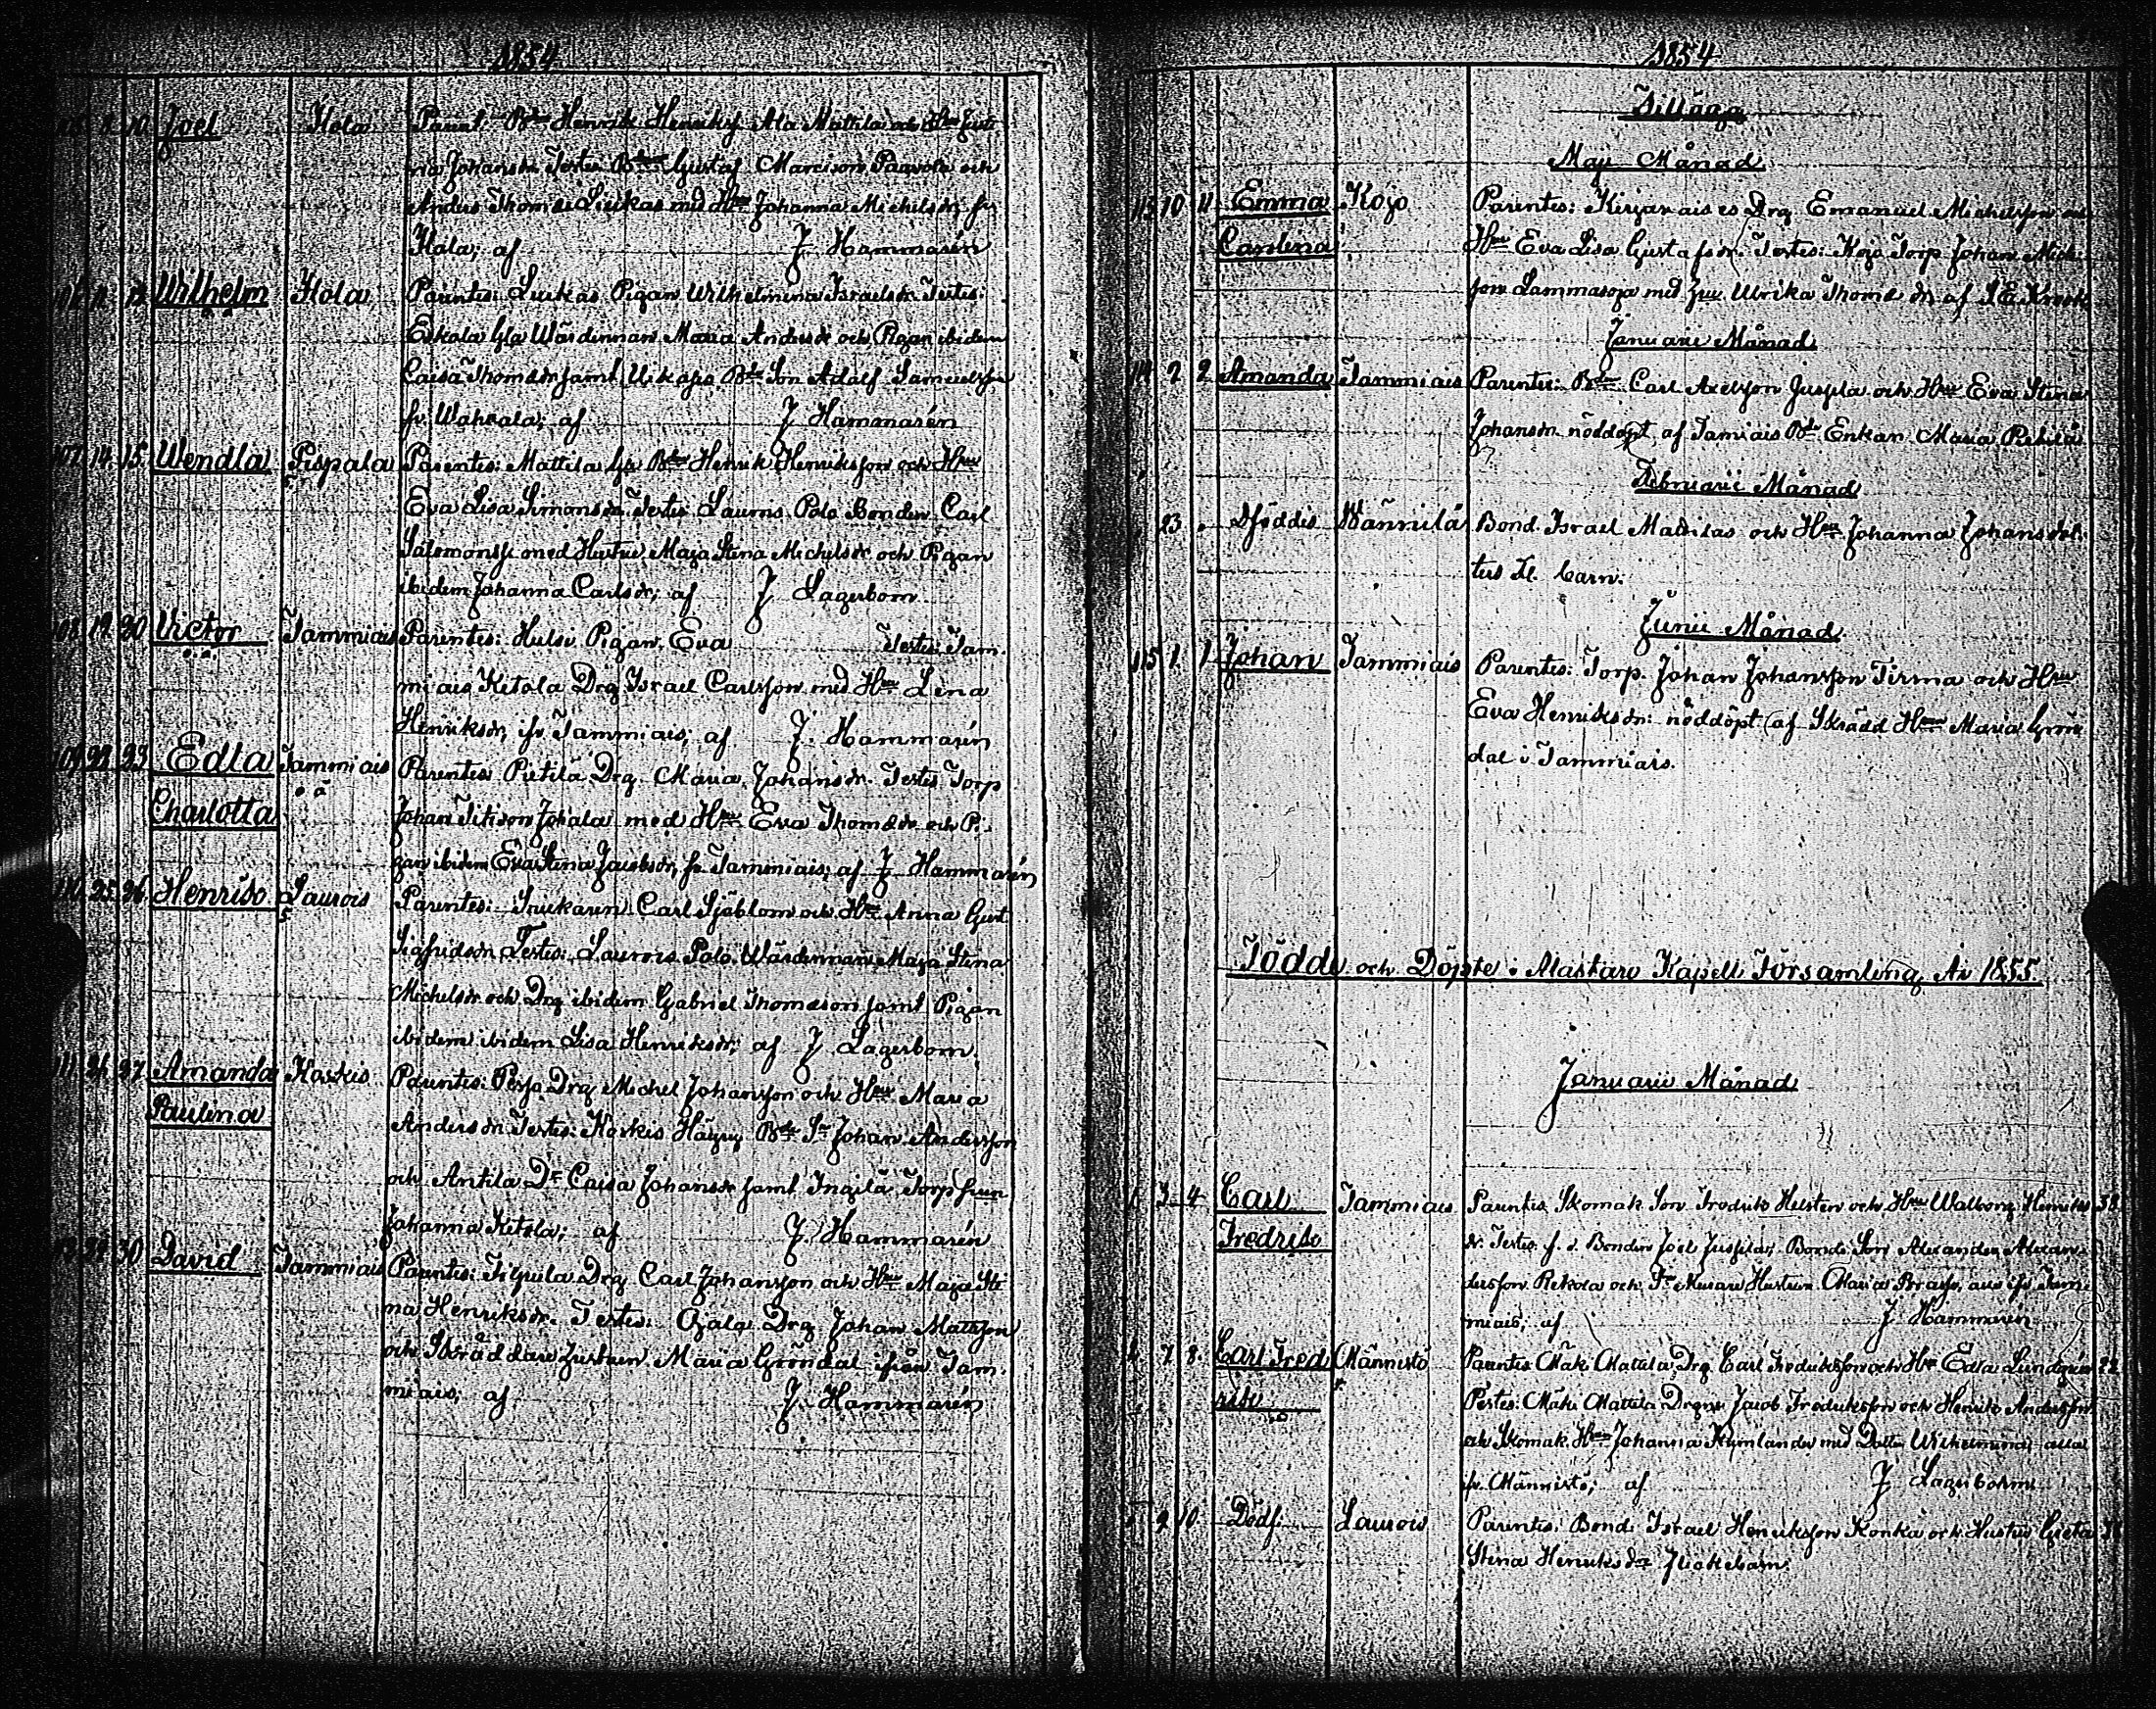 1854
105 8. 10 Joel Hola Parent: Bdn Henrik Henriksf Ala Mattila och Hru Eva
na Johansdr Testes Bden Gustaf Marcison Paavola och
Anders Thomæ Liukas med Hru Johanna Michelsdr, fr.
Hola; af J. Hammarén
106 11. 12 Wilhelm Hola Parentes: Luukas Pigan Wilhelmina Israelsdr. Testes:
Eskola Gla Wärdinnan Maria Andersdr och Pigan ibidem
Caisa Thomasdr samt Uikapä Bde Son Adolf Samuelsson
fr. Wahvala; af J Hammarén
107. 14. 15. Wendla Pispala Parentes: Mattila Gla Bden Henrik Henriksson och Hru
Eva Lisa Simonsdr. Testes Laurois Polo Bonden Carl
Salomonsf. med Hustru Maja Stina Michelsdr. och Pigan
ibidem Johanna Carlsdr, af J Lagerbom
108. 19. 20 Victor Tammiais Parentes: Hulsi Pigan Eva Testes Tam.
miais Ketola Drg Israel Carlsson med Hru Lena
Henriksdr, ifr. Tammiais; af J. Hammarén
109 22. 23 Edla Tammiais Parentes Pietilä Drg. Maria Johansdr. Testes Torp
Charlotta Johan Johala med Hru Eva Thomasdr och Pi.
gan ibidem Eva Stina Jacobsdr, fr Tammiais, af J Hammarén
110. 25. 26. Henrik Laurois Parentes: Snickaren Carl Sjöblom och Hru Anna Gust
Sigfridsdr Testes: Laurois Polo Wärdinnan Maja Stina
Michelsdr och Drg ibidem Gabriel Thomasson samt Pigan
ibidem ibidem Lisa Henriksdr; af J Lagerbom.
111 26 27. Amanda Koskis Parentes: Drg Michel Johansson och Hru Maria
Paulina Andersdr Testes: Koskis Bde Sn Johan Andersson
och Antila Dr Caisa Johansdr samt Ingilä Torp hrun
Johanna Ketola; af J. Hammarén
112 29 30 David Tammiais Parentes: Filpula Drg Carl Johansson och Hru Maja Sti
na Henriksdr. Testes: Ojala Drg Johan Matsson
och Skräddare hustrun Maria Gröndal ifrån Tam.
miais; af J. Hammarén
1854
Tillägg
Maji Månad
113 10 11 Emma Kojo Parentes: Kirjanais Drg Emanuel Michelsson och
Carolina Hru Eva Lisa Gustafsdr. Testes: Kojo Torp. Johan Mich.
son Lammasoja med hru Ulrika Thomæ dr, af
Januarii Månad
114 2 2 Amanda Tammiais Parentes: Bdn Carl Axelsson Jussila och Hru Eva Stina
Johansdr. nöddöpt af Tamiais Bde Enkan Maria Rekola
Februarii Månad
23 Dföddis Wännilä Bond. Israel Mattilas och Hru Johanna Johansdot.
ters barn.
Junii Månad
115 1. 1 Johan Tammiais Parentes: Torp. Johan Johansson Tirma och Hru
Eva Henriksdr: nöddöpt af Skrädd Hrun Maria Grön
dal i Tammiais.
Födde och Döpte i Alastaro Kapell Församling År 1855.
Januarii Månad
1. 3. 4 Carl Tammiais Parentes Skomak. Son Fredrik Hellsten och Hru Walborg Henriks 38
Fredrik dr. Testes: f. d. Bonden Joel Jussila, Bonde Son Alexander Alexan
dersson Rekola och Hustrun Maria ifr Tam
miais; af J Hammarén
2. 7. 8. Carl Fred Männistö Parentes Mäki Mattila Drg. Carl Fredriksson och Hru Edla Lundqvist 22
rik Testes: Mäki Mattila Drgne Jacob Fredriksson och Henrik Andersson
och Skomak. Hru Johanna Kymlander med Dotter Wilhelmina, alla
fr. Männistö; af J Lagerbohm
9. 10. Dödf. Laurois Parentes: Bond. Israel Henriksson Konka och Hustru Greta
Stina Henriksdr flickebarn.